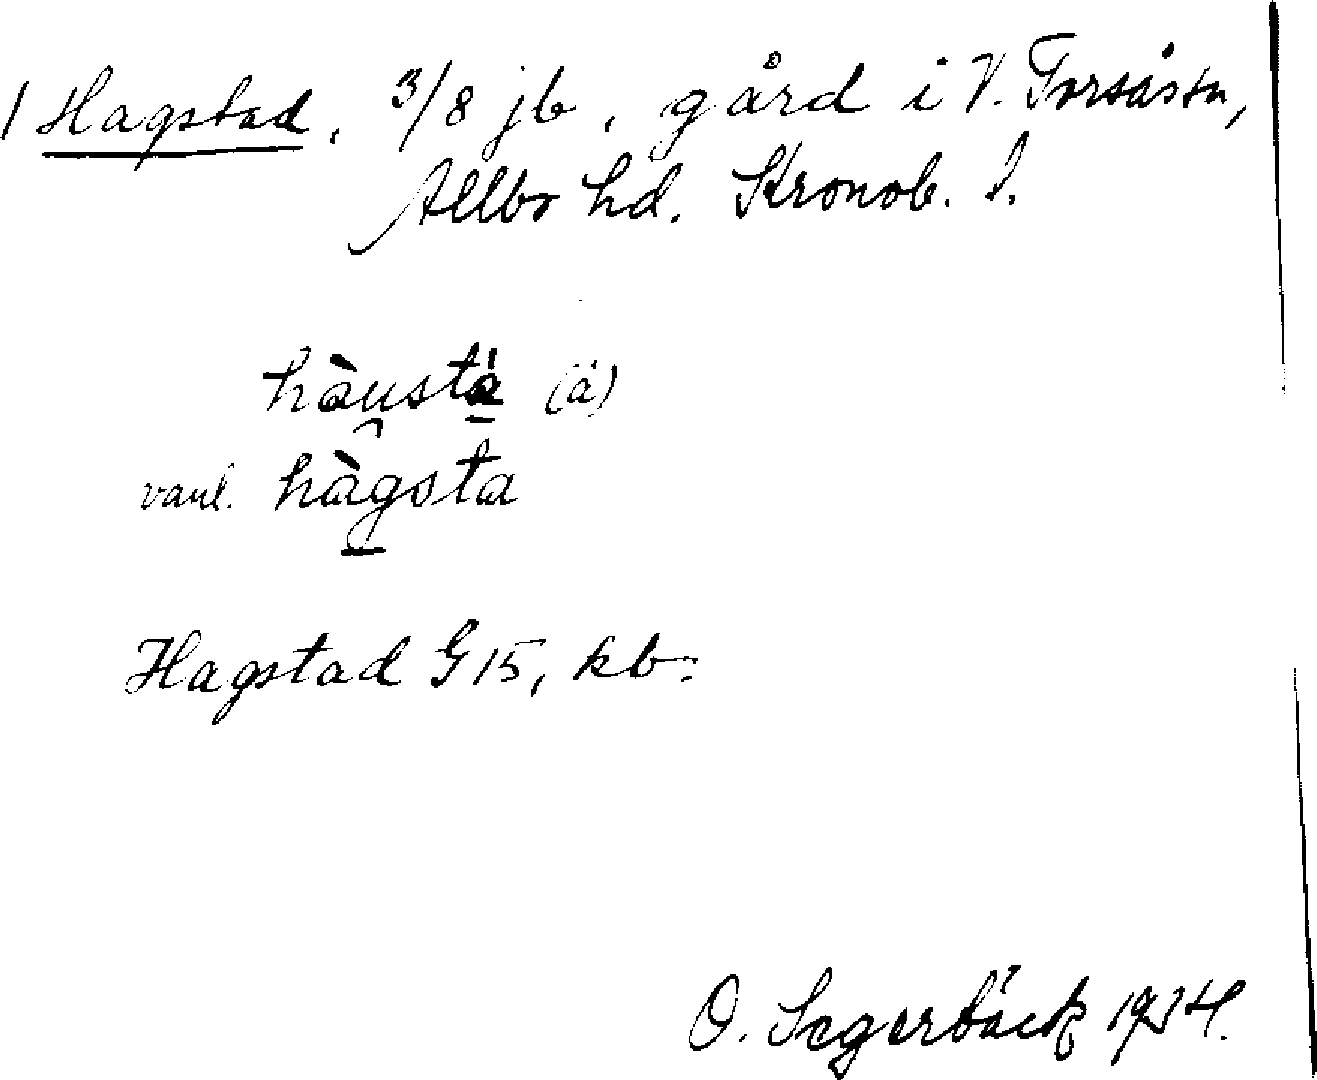 1 Hagstad, 3/8 jb, gård i V. Torsås sn,
Allbo hd. Kronob. l.
hàustà (ä)
vanl. hàgsta
Hagstad G 15, kb.
O. Segerbäck 1934.